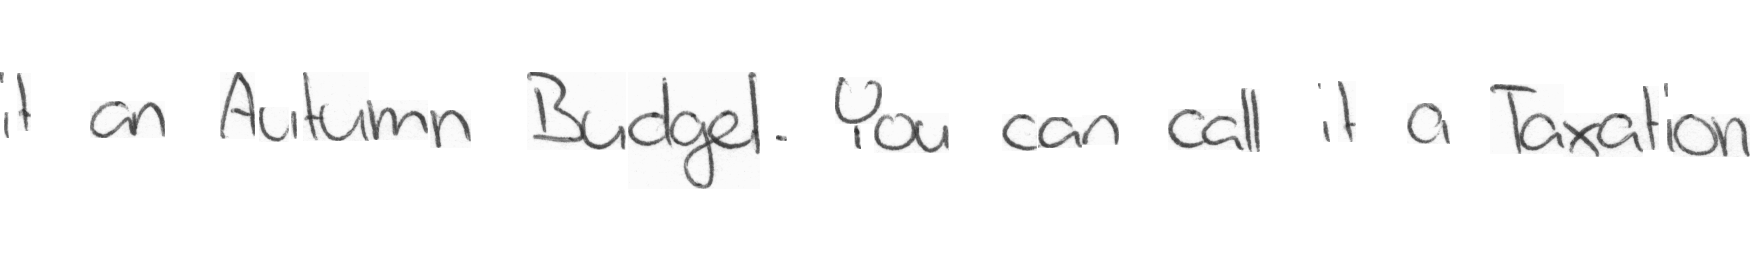 it an Autumn Budget. You can call it a Taxation